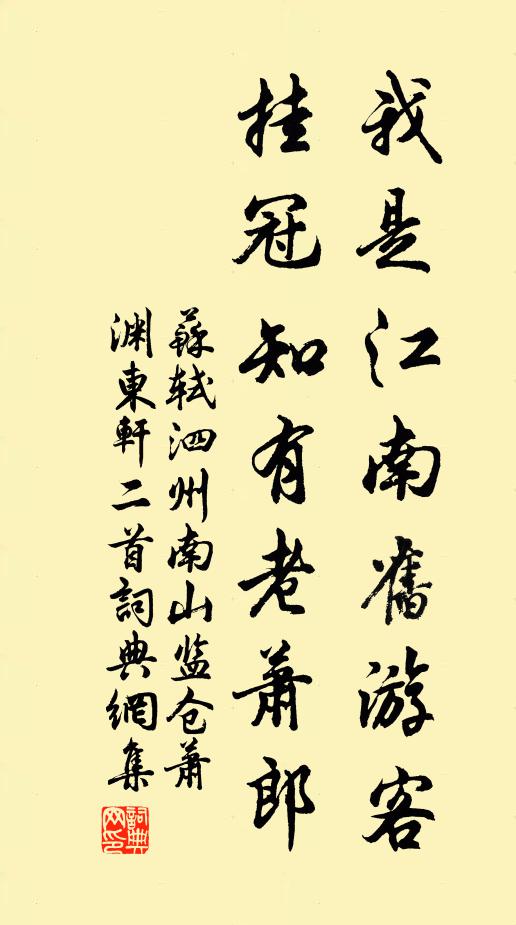 我是江南舊游客
挂冠知有老蕭郎
蘇軾泗州南山监仓蕭
渊東軒二首詞典網集
詞典
网印